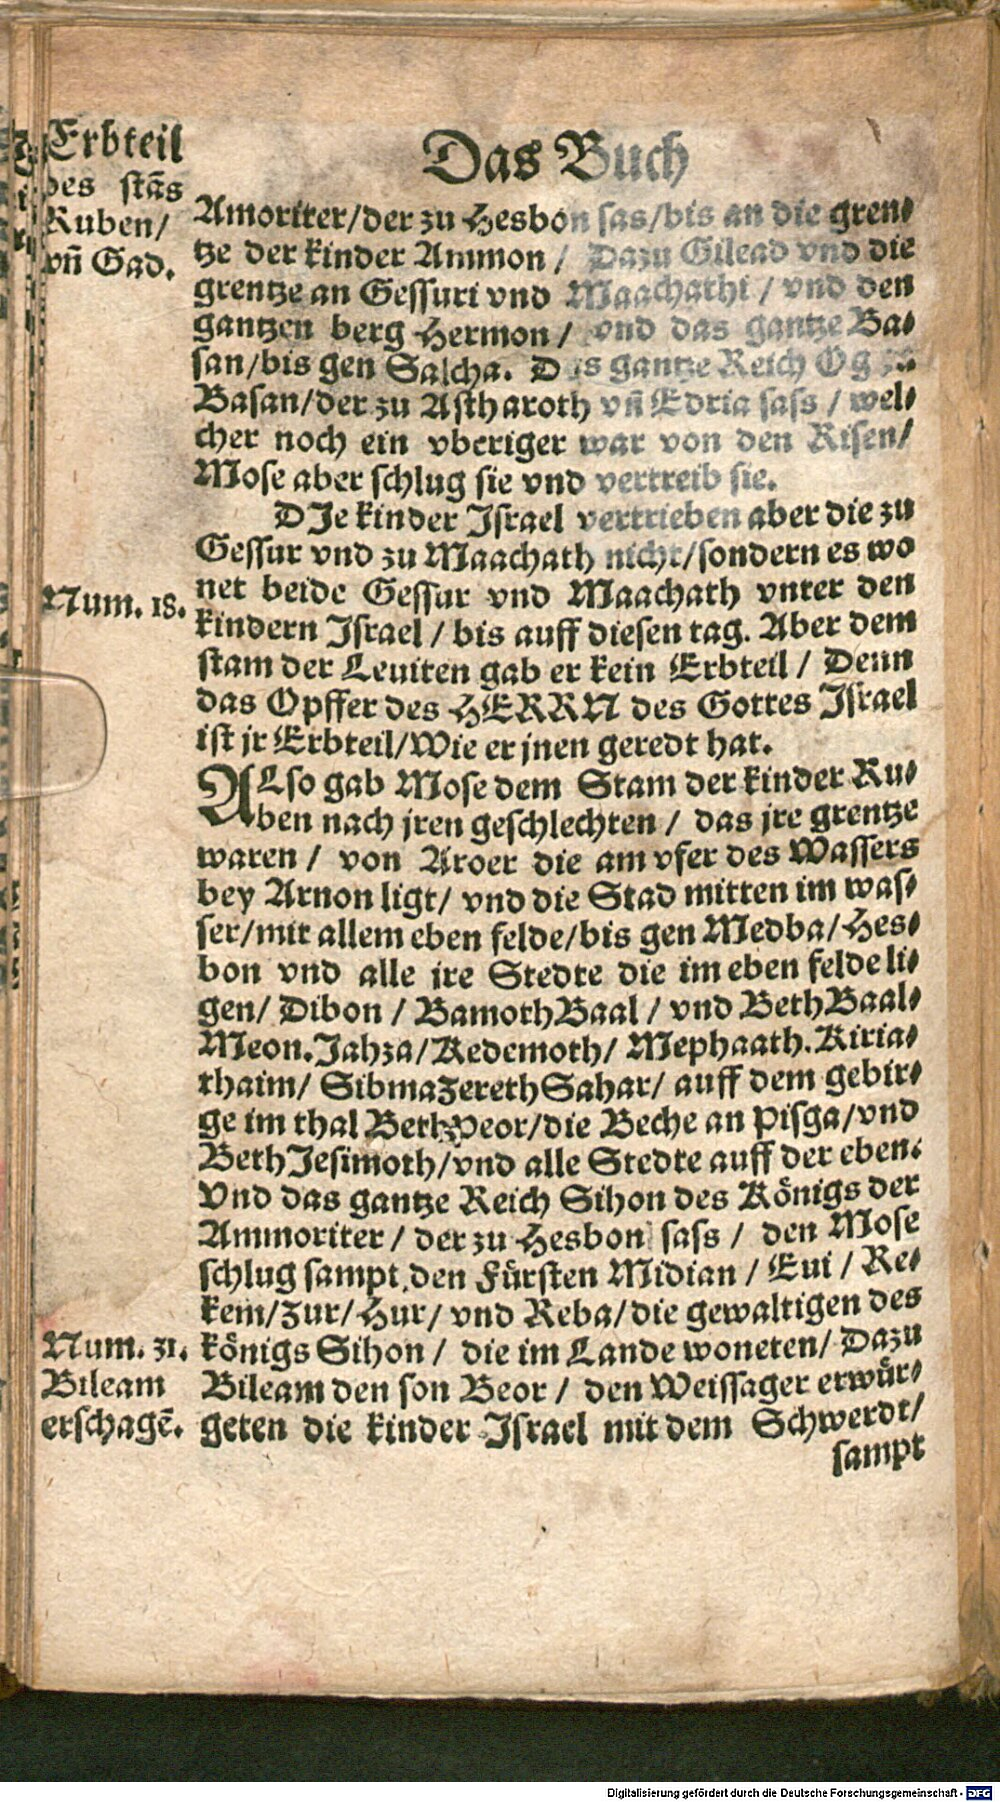 Das Buch
Erbteil
des stãs
Ruben/
vñ Gad.
Amoriter/der zu Hesbon sas/bis an die gren⸗
tze der kinder Ammon / Dazu Gilead vnd die
grentze an Gessuri vnd Maachathi / vnd den
gantzen berg Hermon / vnd das gantze Ba⸗
san/bis gen Salcha. Das gantze Reich Og zu
Basan/der zu Astharoth vñ Edria sass / wel⸗
cher noch ein vberiger war von den Risen/
Mose aber schlug sie vnd vertreib sie.
DIe kinder Israel vertrieben aber die zu
Gessur vnd zu Maachath nicht/sondern es wo
net beide Gessur vnd Maachath vnter den
Num. 18.
kindern Israel / bis auff diesen tag. Aber dem
stam der Leuiten gab er kein Erbteil / Denn
das Opffer des HERRN des Gottes Israel
ist jr Erbteil/Wie er jnen geredt hat.
ALso gab Mose dem Stam der kinder Ru⸗
ben nach jren geschlechten / das jre grentze
waren / von Aroer die am vfer des Wassers
bey Arnon ligt/ vnd die Stad mitten im was⸗
ser/mit allem eben felde/bis gen Medba/Hes⸗
bon vnd alle jre Stedte die im eben felde li⸗
gen/ Dibon / BamothBaal / vnd BethBaal⸗
Meon.Jahza/Kedemoth/ Mephaath.Kiria⸗
thaim/ SibmaZerethSahar/ auff dem gebir⸗
ge im thal BethPeor/die Beche an Pisga/vnd
BethJesimoth/vnd alle Stedte auff der eben.
Vnd das gantze Reich Sihon des Königs der
Ammoriter / der zu Hesbon sass / den Mose
schlug sampt den Fürsten Midian / Eui / Re⸗
kem/Zur/Hur/ vnd Reba/die gewaltigen des
königs Sihon / die im Lande woneten/ Dazu
Bileam den son Beor / den Weissager erwür⸗
geten die kinder Israel mit dem Schwerdt/
Num. 31.
Bileam
erschagẽ.
sampt
Digitalisierung gefördert durch die Deutsche Forschungsgemeinschaft - DFG